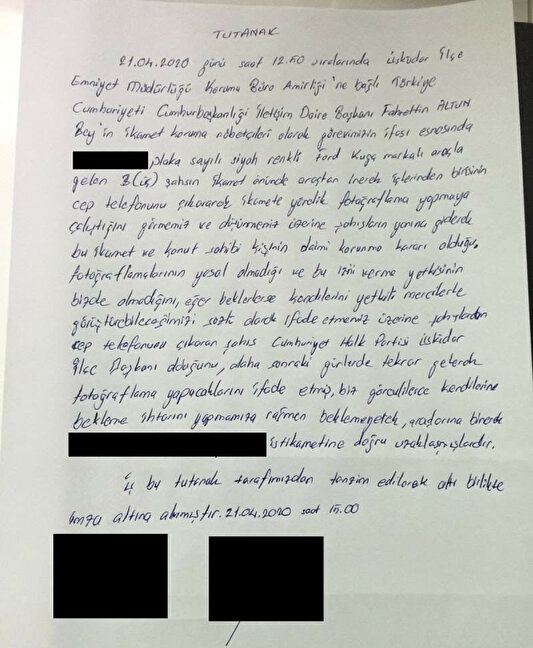 TUTANAK
21.04.2020 günü saat 12.50 sıralarında Üsküdar İlçe
Emniyet Müdürlüğü Koruma Büro Amirliği'ne bağlı Türkiye
Cumhuriyeti Cumhurbaşkanlığı İletişim Daire Başkanı Fahrettin ALTUN
Bey'in ikamet koruma nöbetçileri olarak görevimizin ifası esnasında
plaka sayılı siyah renkli Ford Kuga markalı araçla
gelen 3 (üç) şahsın ikamet önünde araçtan inerek içlerinden birisinin
cep telefonunu çıkararak ikamete yönelik fotoğraflama yapmaya
çalıştığını görmemiz ve üzerine şahısların yanına giderek
bu ikamet ve konut sahibi kişinin daimi koruma kararı olduğu,
fotoğraflamalarının yasal olmadığı ve bu izni verme yetkisinin
bizde olmadığını, eğer beklerlerse kendilerini yetkili mercilerle
görüştürebileceğimizi sözlü olarak ifade etmemiz üzerine şahıslardan
cep telefonunu çıkaran şahıs Cumhuriyet Halk Partisi Üsküdar
İlçe Başkanı olduğunu, daha sonraki günlerde tekrar gelerek
fotoğraflama yapacaklarını ifade etmiş, biz görevlilerce kendilerine
bekleme ihtarını yapmamıza rağmen beklemeyerek, araçlarına binerek
istikametine doğru uzaklaşmışlardır.
İş bu tutanak tarafımızdan tanzim edilerek altı birlikte
imza altına alınmıştır. 21.04.2020 saat 15.00